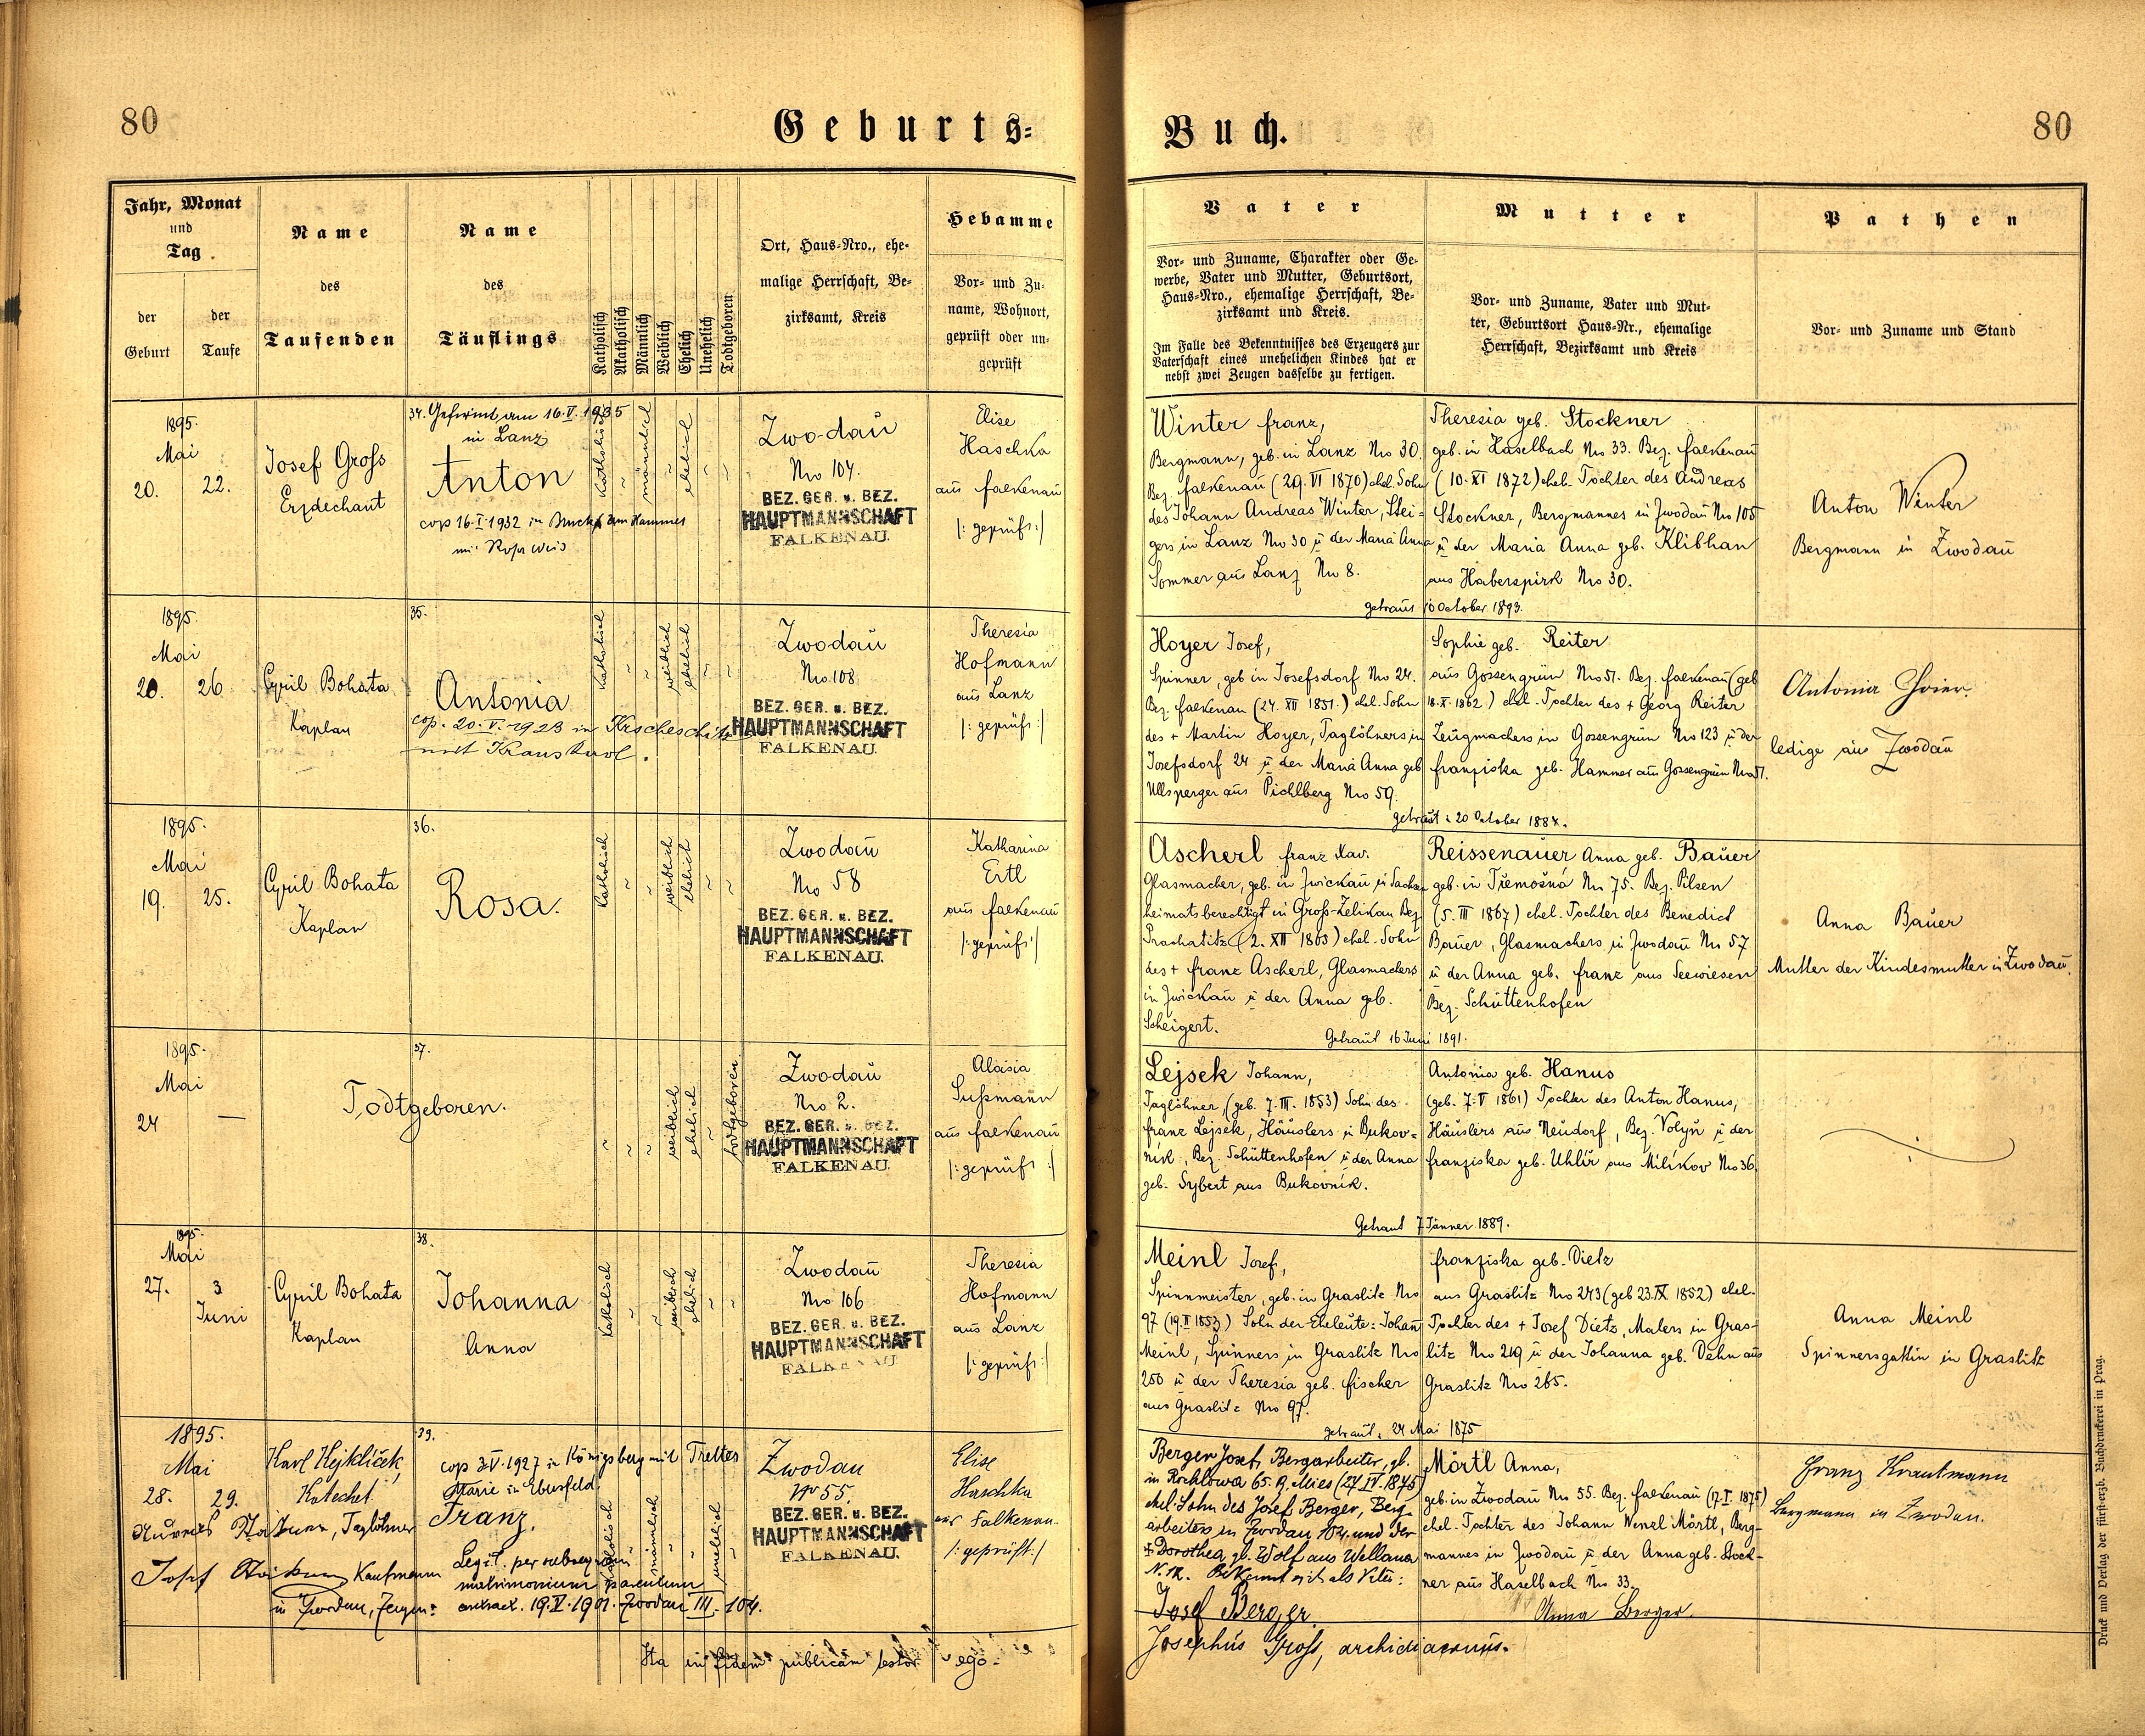 80
Geburts=
Buch.
80
Jahr, Monat
und
Tag
der
Geburt
der
Taufe
Name
des
Taufenden
Name
des
Täuflings
Katholisch
Akatholisch
Männlich
Weiblich
Ehelich
Unehelich
Todtgeboren
Ort, Haus-Nro., ehe-
malige Herrschaft, Be-
zirksamt, Kreis
Hebamme
Vor- und Zu-
name, Wohnort,
geprüft oder un-
geprüft
Vater
Vor- und Zuname, Charakter oder Ge-
werbe, Vater und Mutter, Geburtsort,
Haus-Nro., ehemalige Herrschaft, Be-
zirksamt und Kreis.
Im Falle des Bekenntnisses des Erzeugers zur
Vaterschaft eines unehelichen Kindes hat er
nebst zwei Zeugen dasselbe zu fertigen.
Mutter
Vor- und Zuname, Vater und Mut-
ter, Geburtsort Haus-Nr., ehemalige
Herrschaft, Bezirksamt und Kreis
Pathen
Vor- und Zuname und Stand
1895.
Mai
20. 22.
Josef Gross
Erzdechant
34. Gefirmt am 16.V.1935
in Lanz
Anton
cop 16.I.1932 in
mit
katholisch
männlich
ehelich
Zwodau
Nro 104.
BEZ. GER. u. BEZ.
HAUPTMANNSCHAFT
FALKENAU.
Elise
Haschka
aus Falkenau
/: geprüft :/
Winter Franz,
Bergmann, geb. in Lanz No 30.
Bez. Falkenau (29. VI 1870) ehel. Sohn
des Johann Andreas Winter, Stei=
gers in Lanz No 30 u der Maria Anna
Sommer aus Lanz No 8.
Theresia geb. Stockner
geb. in Haselbach No 33. Bez. Falkenau
(10. XI 1872) ehel. Tochter des Andreas
Stockner, Bergmannes in Zwodau No 105
u der Maria Anna geb. Klibhan
aus Haberspirk No 30.
getraut 10 October 1893.
Anton Winter
Bergmann in Zwodau
1895.
Mai
20. 26
Cyril Bohata
Kaplan
35.
Antonia
cop. 20.V.1923 in
mit
katholisch
weiblich
ehelich
Zwodau
No 108
BEZ. GER. u. BEZ.
HAUPTMANNSCHAFT
FALKENAU.
Theresia
Hofmann
aus Lanz
/: geprüft :/
Hoyer Josef,
Spinner, geb in Josefsdorf No 24.
Bez. Falkenau (24. XII 1851.) ehel. Sohn
des + Martin Hoyer, Taglöhners in
Josefsdorf 24 u der Maria Anna geb
Ullsperger aus Pichlberg No 59.
Sophie geb. Reiter
aus Gossengrün No 51. Bez. Falkenau (geb
18. X. 1862) ehel. Tochter des + Georg Reiter
Zeugmachers in Gossengrün No 123 u der
Franziska geb. Hammer aus Gossengrün No 51.
getraut: 20 October 1884.
Antonia Hoier
ledige aus Zwodau
1895.
Mai
19. 25.
Cyril Bohata
Kaplan
36.
Rosa.
katholisch
weiblich
ehelich
Zwodau
No 58
BEZ. GER. u. BEZ.
HAUPTMANNSCHAFT
FALKENAU.
Katharina
Ertl
aus Falkenau
/: geprüft :/
Ascherl Franz Xav.
Glasmacher, geb. in Zwickau in Sachsen
heimatsberechtigt in Gross-Zelikau Bez
Prachatitz (2. XII 1863) ehel. Sohn
des + Franz Ascherl, Glasmachers
in Zwickau u der Anna geb.
Scheigert.
Reissenauer Anna geb. Bauer
geb. in Třemošná No 75. Bez. Pilsen
(5. III 1867) ehel. Tochter des Benedict
Bauer, Glasmachers in Zwodau No 57
u der Anna geb. Franz aus Seewiesen
Bez. Schüttenhofen
Getraut 16 Juni 1891.
Anna Bauer
Mutter der Kindesmutter in Zwodau.
1895.
Mai
24 —
37.
Todtgeboren.
weiblich
ehelich
todtgeboren
Zwodau
Nro 2.
BEZ. GER. u. BEZ.
HAUPTMANNSCHAFT
FALKENAU.
Aloisia
Sußmann
aus Falkenau
/: geprüft :/
Lejsek Johann,
Taglöhner, (geb. 7. III. 1853) Sohn des
Franz Lejsek, Häuslers in Bukov=
nik, Bez. Schüttenhofen u der Anna
geb. Sybert aus Bukovnik.
Antonia geb. Hanus
(geb. 7. V 1861) Tochter des Anton Hanus,
Häuslers aus Neudorf, Bez. Volyň u der
Franziska geb. Uhlíř aus Milíkov No 36.
Getraut 7 Jänner 1889.
1895.
Mai
27. 3
Juni
Cyril Bohata
Kaplan
38.
Johanna
Anna
katholisch
weiblich
ehelich
Zwodau
No 106
BEZ. GER. u. BEZ.
HAUPTMANNSCHAFT
FALKENAU
Theresia
Hofmann
aus Lanz
/: geprüft :/
Meinl Josef,
Spinnmeister, geb. in Graslitz No
97 (19. II 1853) Sohn der Eheleute: Johann
Meinl, Spinners in Graslitz No
250 u der Theresia geb. Fischer
aus Graslitz No 97.
Franziska geb. Dietz
aus Graslitz No 243 (geb 23. IX 1852) ehel.
Tochter des + Josef Dietz, Malers in Gras-
litz No 219 u der Johanna geb. Dehn aus
Graslitz No 265.
getraut: 24 Mai 1875
Anna Meinl
Spinnersgattin in Graslitz
1895.
Mai
28. 29.
Karl Hejkliček,
Katechet
Taglöhner
Josef Kaufmann
in Zwodau, Zeugen:
39.
cop 3.V.1927 in Königsberg mit
Marie in
Franz.
Legit. per subsequum
matrimonium parentum
contract. 19.V.1901. Zwodau III. 104.
katholisch
männlich
unehelich
Zwodau
No 55.
BEZ. GER. u. BEZ.
HAUPTMANNSCHAFT
FALKENAU.
Elise
Haschka
aus Falkenau.
/: geprüft :/
Berger Josef, Bergarbeiter, gb.
in Rochlowa 65. B. Mies (27. IV. 1875)
ehel. Sohn des Josef Berger, Berg-
arbeiters in Zwodau 104. und der
+ Dorothea gb. Wolf aus Wellana
N. 12. Bekennt sich als Vater:
Josef Berger
Mörtl Anna,
geb. in Zwodau No 55. Bez. Falkenau (17. I. 1875)
ehel. Tochter des Johann Wenzl Mörtl, Berg-
mannes in Zwodau u der Anna geb. Stock-
ner aus Haselbach No 33.
Anna Berger
Franz Krautmann
Bergmann in Zwodau.
Ita in fidem publicam testor ego
Josephus Gross, archidiaconus.
Druck und Verlag der fürst-erzb. Buchdruckerei in Prag.